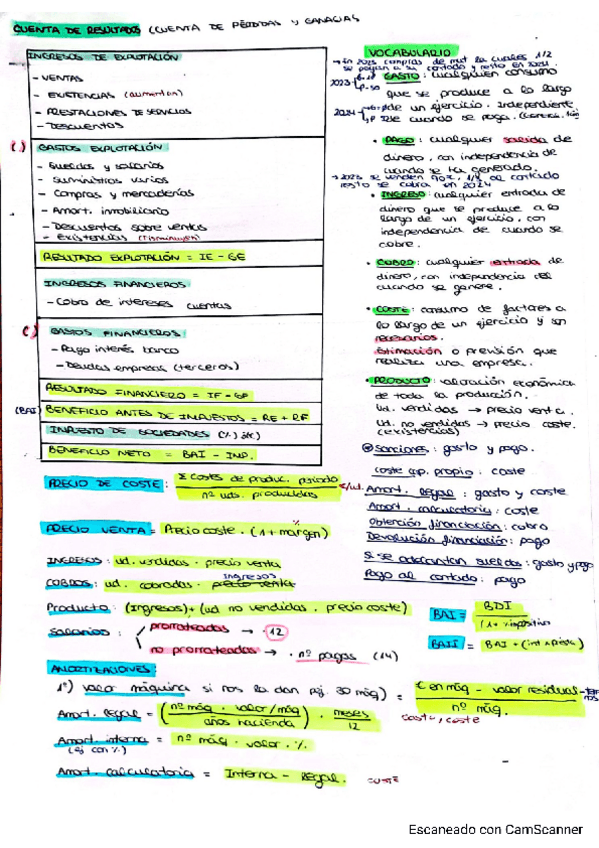 CUENTA DE RESULTADOS (CUENTA DE PÉRDIDAS Y GANACIAS
INGRESOS DE EXPLOTACIÓN
- VENTAS
- EXISTENCIAS (aumentan)
- PRESTACIONES DE SERVICIOS
- DESCUENTOS
(-) GASTOS EXPLOTACIÓN
- Sueldos y salarios
- Suministros varios
- Compras y mercaderías
- Amort. inmobiliario
- Descuentos sobre ventas
- Existencias (disminuyen)
RESULTADO EXPLOTACIÓN = IE - GE
INGRESOS FINANCIEROS
- Cobro de intereses cuentas
(-) GASTOS FINANCIEROS:
- Pago interés banco
- Deudas empresas (terceros)
RESULTADO FINANCIERO = IF - GF
(BAI) BENEFICIO ANTES DE IMPUESTOS = RE + RF
IMPUESTO DE SOCIEDADES
BENEFICIO NETO = BAI - IMP.
VOCABULARIO
→ En 2023 compras de mat la cuales 1/2
se pagan a su contado y resto en 2024.
GASTO: cualquier consumo
que se produce a lo largo
de un ejercicio. Independiente
de cuando se paga.
• PAGO: cualquier salida de
dinero, con independencia de
cuando se ha generado.
→ 2023 se venden 1/4 al contado
resto se cobra en 2024
• INGRESO: cualquier entrada de
dinero que se produce a lo
largo de un ejercicio, con
independencia de cuando se
cobre.
• COBRO: cualquier entrada de
dinero, con independencia del
cuando se genere.
• COSTE: consumo de factores a
lo largo de un ejercicio y son
necesarios.
Estimación o previsión que
realiza una empresa.
• PRODUCTO: valoración económica
de toda la producción.
Ud. vendidas → precio venta.
Ud. no vendidas → precio coste.
(existencias)
sanciones: gasto y pago.
coste op. propio: coste
Amort. legal: gasto y coste
Amort. calculatoria: coste
Obtención financiación: cobro
Devolución financiación: pago
Si se adelantan sueldos: gasto y pago
Pago al contado: pago
PRECIO DE COSTE: Σ costes de produc. periodo
nº uds. producidas
PRECIO VENTA = Precio coste. (1 + margen)
%
INGRESOS: ud. vendidas · precio venta
COBROS: ud. cobradas · precio venta
ingresos
Producto: (Ingresos) + (ud no vendidas . precio coste)
salarios: prorrateadas → · 12
no prorrateadas → · nº pagas (14)
BAI = BDI
BAII = BAI +
AMORTIZACIONES:
1º) valor máquina si nos lo dan pej. 30 máq) = € en máq - valor residual
nº máq.
Amort. legal = (nº máq · valor/máq) · meses
años hacienda 12
Amort. interna = nº máq · valor · %
(ej con %)
Amort. calculatoria = Interna - legal.
Escaneado con CamScanner